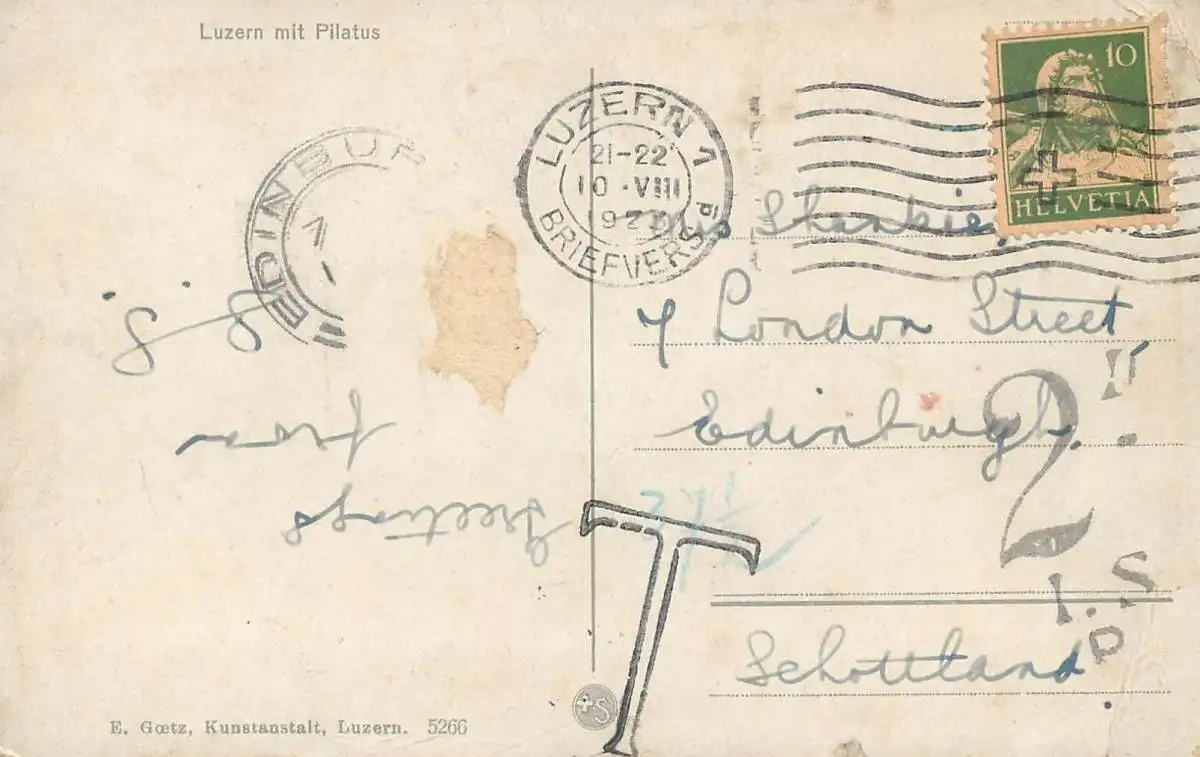 Luzern mit Pilatus
10
HELVETIA
LUZERN 1
21-22
10·VIII
BRIEFVERSD
EDINBUR
Shankie
7 London Street
Edinburgh
Schottland
Greetings
from
J.J.
2
I.S
D
T
+S
E. Gœtz, Kunstanstalt, Luzern. 5266